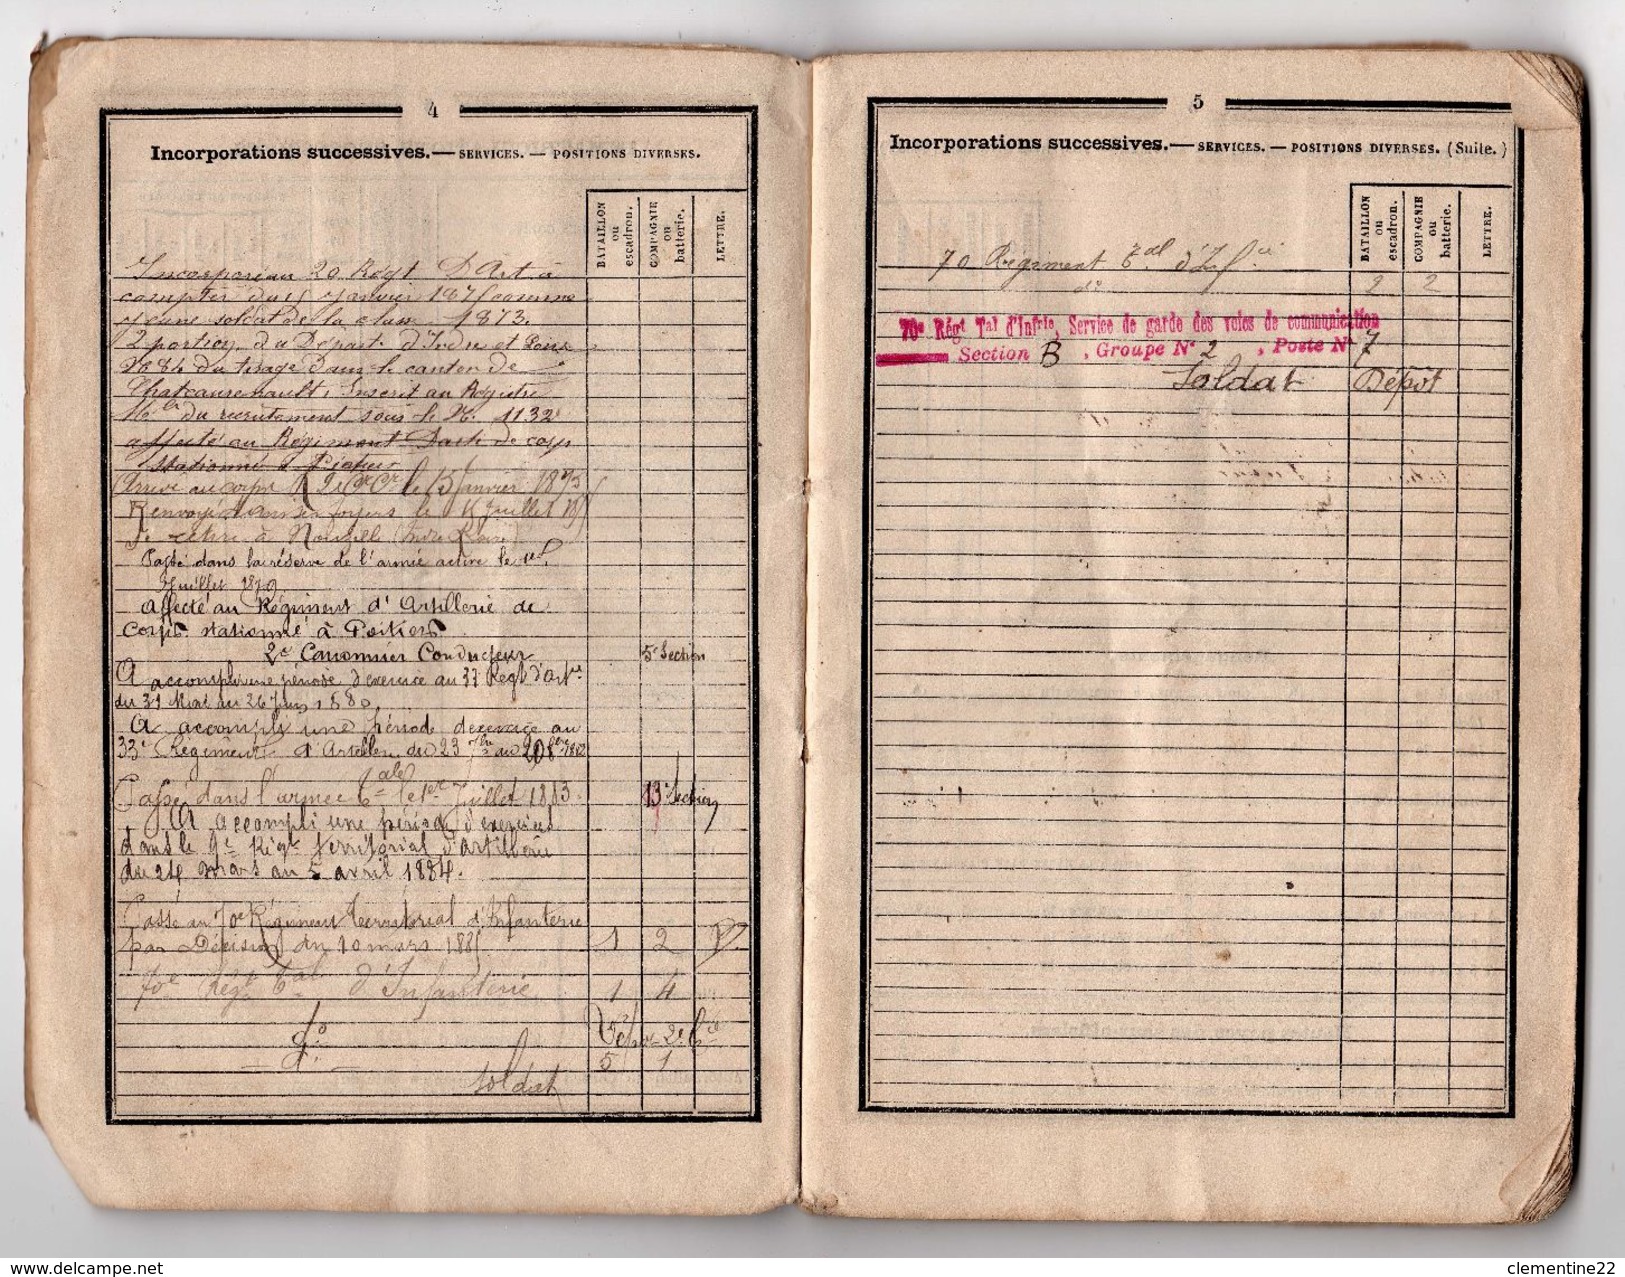 4
Incorporations successives.— SERVICES. — POSITIONS DIVERSES.
BATAILLON ou escadron.
COMPAGNIE ou batterie.
LETTRE.
Incorporé au 20 Régt D'Art à
compter du 15 Janvier 1875 comme
jeune soldat de la classe 1873.
2 portion du Départ. d'Indre et Loire
No 84 du tirage dans le canton de
Chateaurenault, Inscrit au Registre
Mle du recrutement sous le No. 1132
affecté au Régiment D'art. de corps
stationné à Poitiers
Arrivé au corps le 15 Janvier 1875
Renvoyé dans ses foyers le Juillet 187
Se retire à (Indre Loire)
Passé dans la réserve de l'armée active le 1er
Juillet 1879
Affecté au Régiment d'Artillerie de
Corps stationné à Poitiers
2e Canonnier Conducteur 5e Section
A accompli une période d'exercice au 33 Régt d'Art.ie
du 31 Mai au 26 Juin 1880.
A accompli une période d'exercice au
33e Régiment d'Artillerie du 23 7bre au 20 8bre 1882
Passé dans l'armée Tale le 1er Juillet 1883. 13e Section
A accompli une période d'exercices
dans le 9e Régt territorial d'artillerie
du 24 mars au 5 avril 1884.
Passé au 70e Régiment territorial d'Infanterie
par Décision du 10 mars 188 1 2
70e Régt Tal d'Infanterie 1 4
do Dépôt 2e Cie
— do — 5 1
Soldat
5
Incorporations successives.— SERVICES. — POSITIONS DIVERSES. (Suite.)
BATAILLON ou escadron.
COMPAGNIE ou batterie.
LETTRE.
70 Régiment Tal d'Inf.ie
do 2 2
70e Régt Tal d'Infrie, Service de garde des voies de communication
Section B, Groupe No 2, Poste No 7
Soldat Dépot
delcampe.net
clementine22